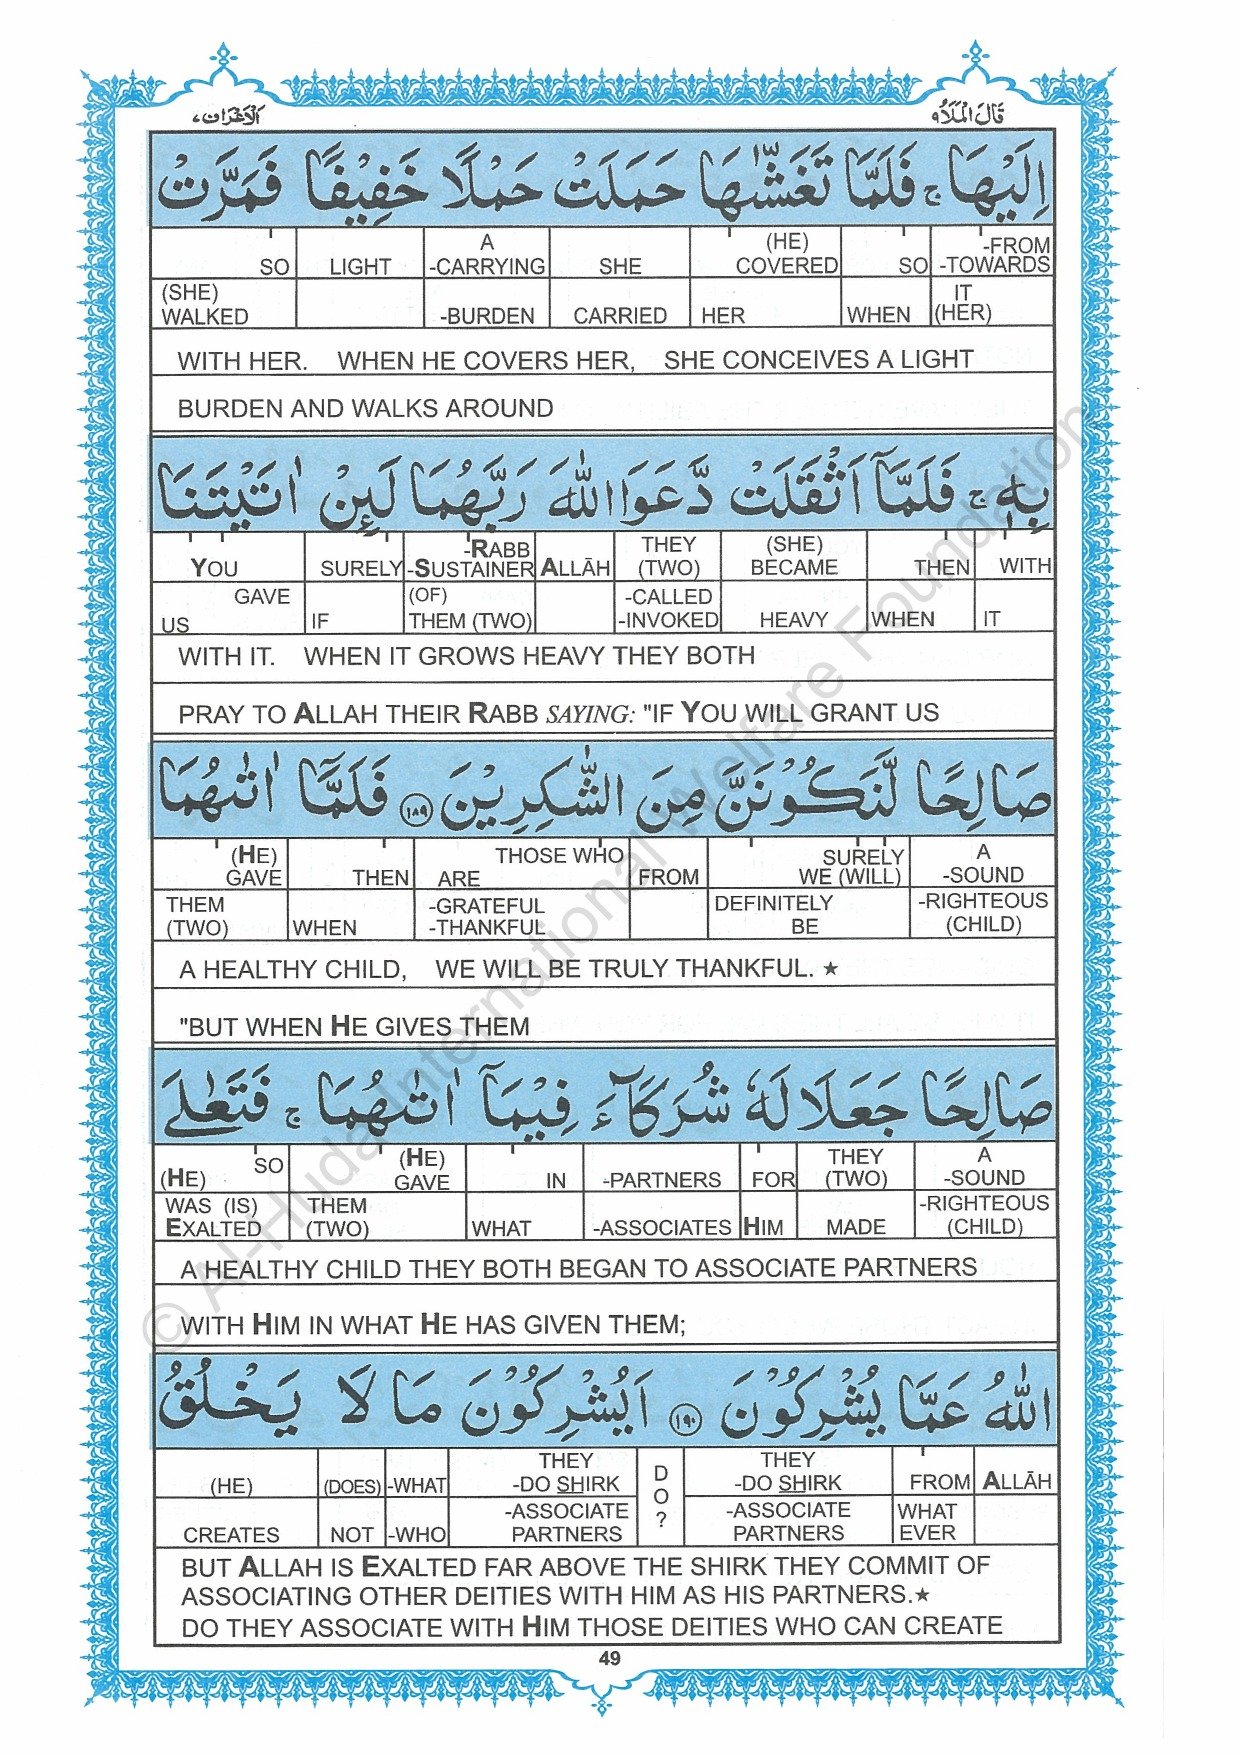 الاعراف ٧ قال الملا ٩
اِلَيْهَا ۚ فَلَمَّا تَغَشّٰىهَا حَمَلَتْ حَمْلًا خَفِيْفًا فَمَرَّتْ
SO LIGHT A -CARRYING SHE (HE) COVERED SO -FROM -TOWARDS
(SHE) WALKED -BURDEN CARRIED HER WHEN IT (HER)
WITH HER. WHEN HE COVERS HER, SHE CONCEIVES A LIGHT
BURDEN AND WALKS AROUND
بِهٖ ۚ فَلَمَّاۤ اَثْقَلَتْ دَّعَوَا اللّٰهَ رَبَّهُمَا لَىِٕنْ اٰتَيْتَنَا
YOU SURELY -RABB -SUSTAINER ALLĀH THEY (TWO) (SHE) BECAME THEN WITH
GAVE US IF (OF) THEM (TWO) -CALLED -INVOKED HEAVY WHEN IT
WITH IT. WHEN IT GROWS HEAVY THEY BOTH
PRAY TO ALLAH THEIR RABB SAYING: "IF YOU WILL GRANT US
صَالِحًا لَّنَكُوْنَنَّ مِنَ الشّٰكِرِيْنَ ١٨٩ فَلَمَّاۤ اٰتٰىهُمَا
(HE) GAVE THEN THOSE WHO ARE FROM SURELY WE (WILL) A -SOUND
THEM (TWO) WHEN -GRATEFUL -THANKFUL DEFINITELY BE -RIGHTEOUS (CHILD)
A HEALTHY CHILD, WE WILL BE TRULY THANKFUL. ★
"BUT WHEN HE GIVES THEM
صَالِحًا جَعَلَا لَهٗ شُرَكَآءَ فِيْمَاۤ اٰتٰىهُمَا ۚ فَتَعٰلَى
SO (HE) (HE) GAVE IN -PARTNERS FOR THEY (TWO) A -SOUND
WAS (IS) EXALTED THEM (TWO) WHAT -ASSOCIATES HIM MADE -RIGHTEOUS (CHILD)
A HEALTHY CHILD THEY BOTH BEGAN TO ASSOCIATE PARTNERS
WITH HIM IN WHAT HE HAS GIVEN THEM;
اللّٰهُ عَمَّا يُشْرِكُوْنَ ١٩٠ اَيُشْرِكُوْنَ مَا لَا يَخْلُقُ
(HE) (DOES) -WHAT THEY -DO SHIRK DO? THEY -DO SHIRK FROM ALLĀH
CREATES NOT -WHO -ASSOCIATE PARTNERS -ASSOCIATE PARTNERS WHAT EVER
BUT ALLAH IS EXALTED FAR ABOVE THE SHIRK THEY COMMIT OF
ASSOCIATING OTHER DEITIES WITH HIM AS HIS PARTNERS.★
DO THEY ASSOCIATE WITH HIM THOSE DEITIES WHO CAN CREATE
49
© Al-Huda International Welfare Foundation